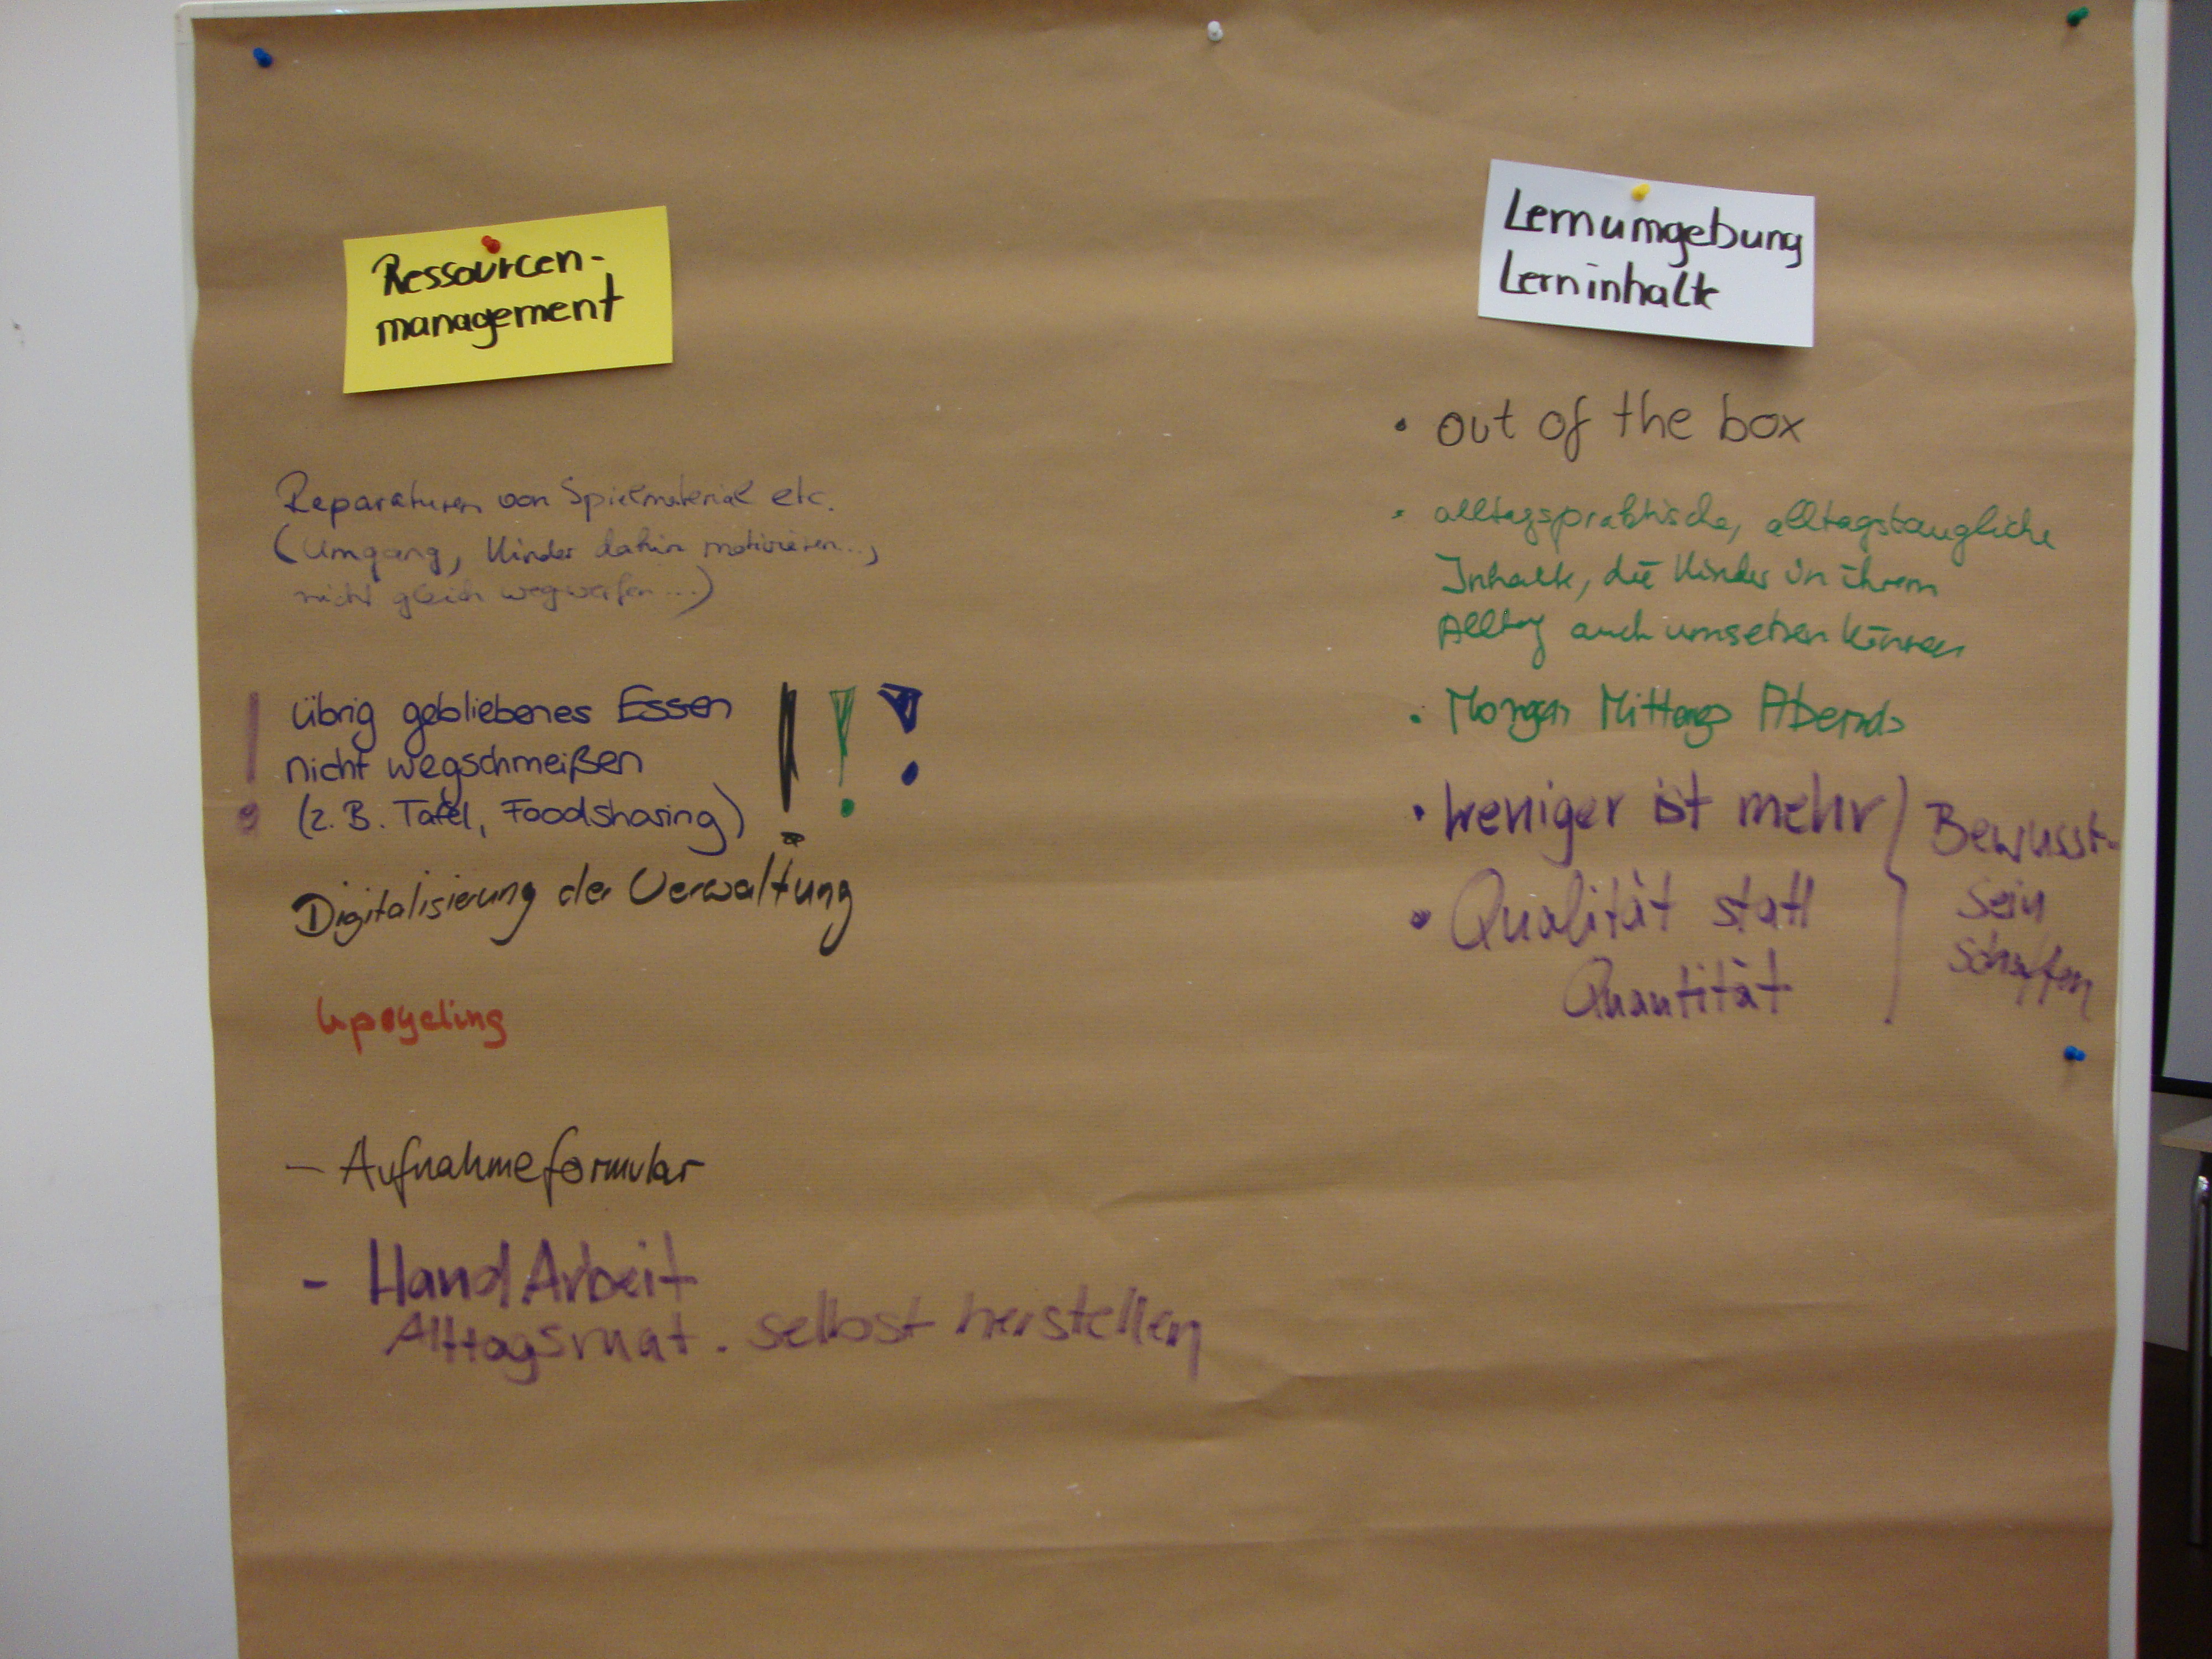 Ressourcen-
management
Reparaturen von Spielmaterial etc.
(Umgang, Kinder dahin motivieren...,
nicht gleich wegwerfen...)
! übrig gebliebenes Essen ! ! !
nicht wegschmeißen
(z.B. Tafel, Foodsharing)
Digitalisierung der Verwaltung
Upcycling
- Aufnahmeformular
- HandArbeit
Alltagsmat. selbst herstellen
Lernumgebung
Lerninhalte
• out of the box
• alltagspraktische, alltagstaugliche
Inhalte, die Kinder in ihrem
Alltag auch umsetzen können
• Morgens Mittags Abends
• weniger ist mehr
• Qualität statt
Quantität
Bewusst-
sein
schaffen